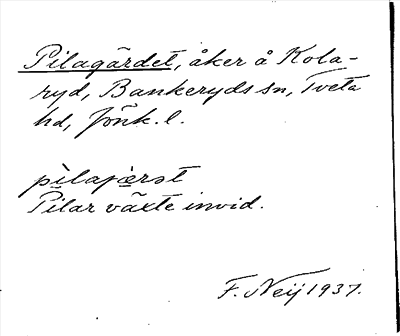 Pilagärdet, åker å Kola-
ryd, Bankeryds sn, Tveta
hd, Jönk. l.
pìlajæ̀rst
Pilar växte invid.
F. Neij 1937.